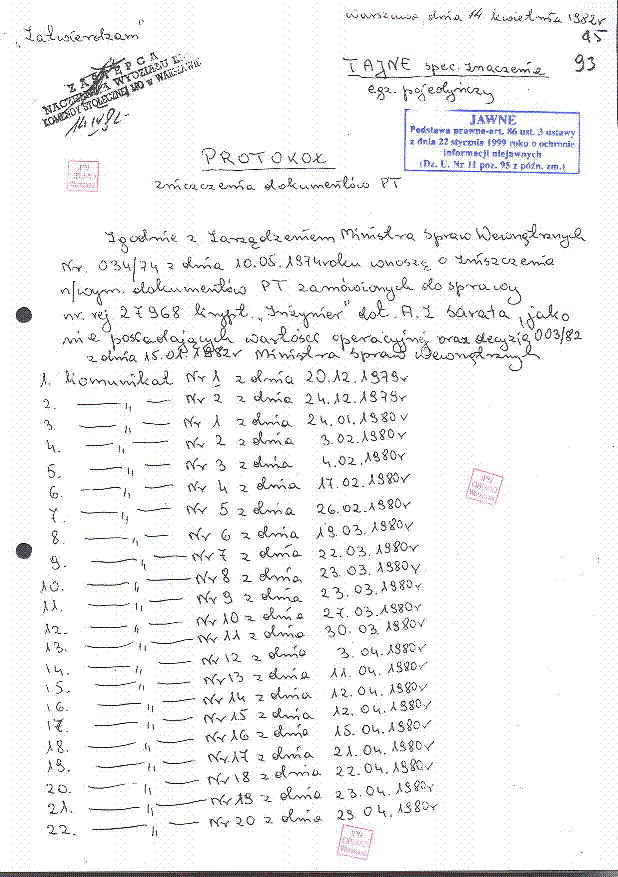 Warszawa, dnia 14 kwietnia 1982r
45
„Zatwierdzam"
ZASTĘPCA
NACZELNIKA WYDZIAŁU
KOMENDY STOŁECZNEJ MO w WARSZAWIE
14.IV.82
TAJNE spec. znaczenia
93
egz. pojedyńczy
JAWNE
Podstawa prawne-art. 86 ust. 3 ustawy
z dnia 22 stycznia 1999 roku o ochronie
informacji niejawnych
(Dz. U. Nr 11 poz. 95 z późn. zm.)
PROTOKÓŁ
zniszczenia dokumentów PT
IPN
Warszawa
Zgodnie z Zarządzeniem Ministra Spraw Wewnętrznych
Nr. 034/74 z dnia 10.05.1974roku wnoszę o zniszczenia
n/wym. dokumentów PT zamówionych do sprawy
nr. rej. 27968 krypt. „Inżynier" dot. A.Z Sarata, jako
nie posiadających wartości operacyjnej oraz decyzją 003/82
z dnia 15.01.1982r Ministra Spraw Wewnętrznych
1. Komunikat Nr 1 z dnia 20.12.1979r
2. —— „ —— Nr 2 z dnia 24.12.1979r
3. —— „ —— Nr 1 z dnia 24.01.1980r
4. —— „ —— Nr 2 z dnia 3.02.1980r
5. —— „ —— Nr 3 z dnia 4.02.1980r
6. —— „ —— Nr 4 z dnia 17.02.1980r
7. —— „ —— Nr 5 z dnia 26.02.1980r
8. —— „ —— Nr 6 z dnia 19.03.1980r
9. —— „ —— Nr 7 z dnia 22.03.1980r
10. —— „ —— Nr 8 z dnia 23.03.1980r
11. —— „ —— Nr 9 z dnia 23.03.1980r
12. —— „ —— Nr 10 z dnia 27.03.1980r
13. —— „ —— Nr 11 z dnia 30.03.1980r
14. —— „ —— Nr 12 z dnia 3.04.1980r
15. —— „ —— Nr 13 z dnia 11.04.1980r
16. —— „ —— Nr 14 z dnia 12.04.1980r
17. —— „ —— Nr 15 z dnia 12.04.1980r
18. —— „ —— Nr 16 z dnia 15.04.1980r
19. —— „ —— Nr 17 z dnia 21.04.1980r
20. —— „ —— Nr 18 z dnia 22.04.1980r
21. —— „ —— Nr 19 z dnia 23.04.1980r
22. —— „ —— Nr 20 z dnia 29.04.1980r
IPN
Warszawa
IPN
Warszawa